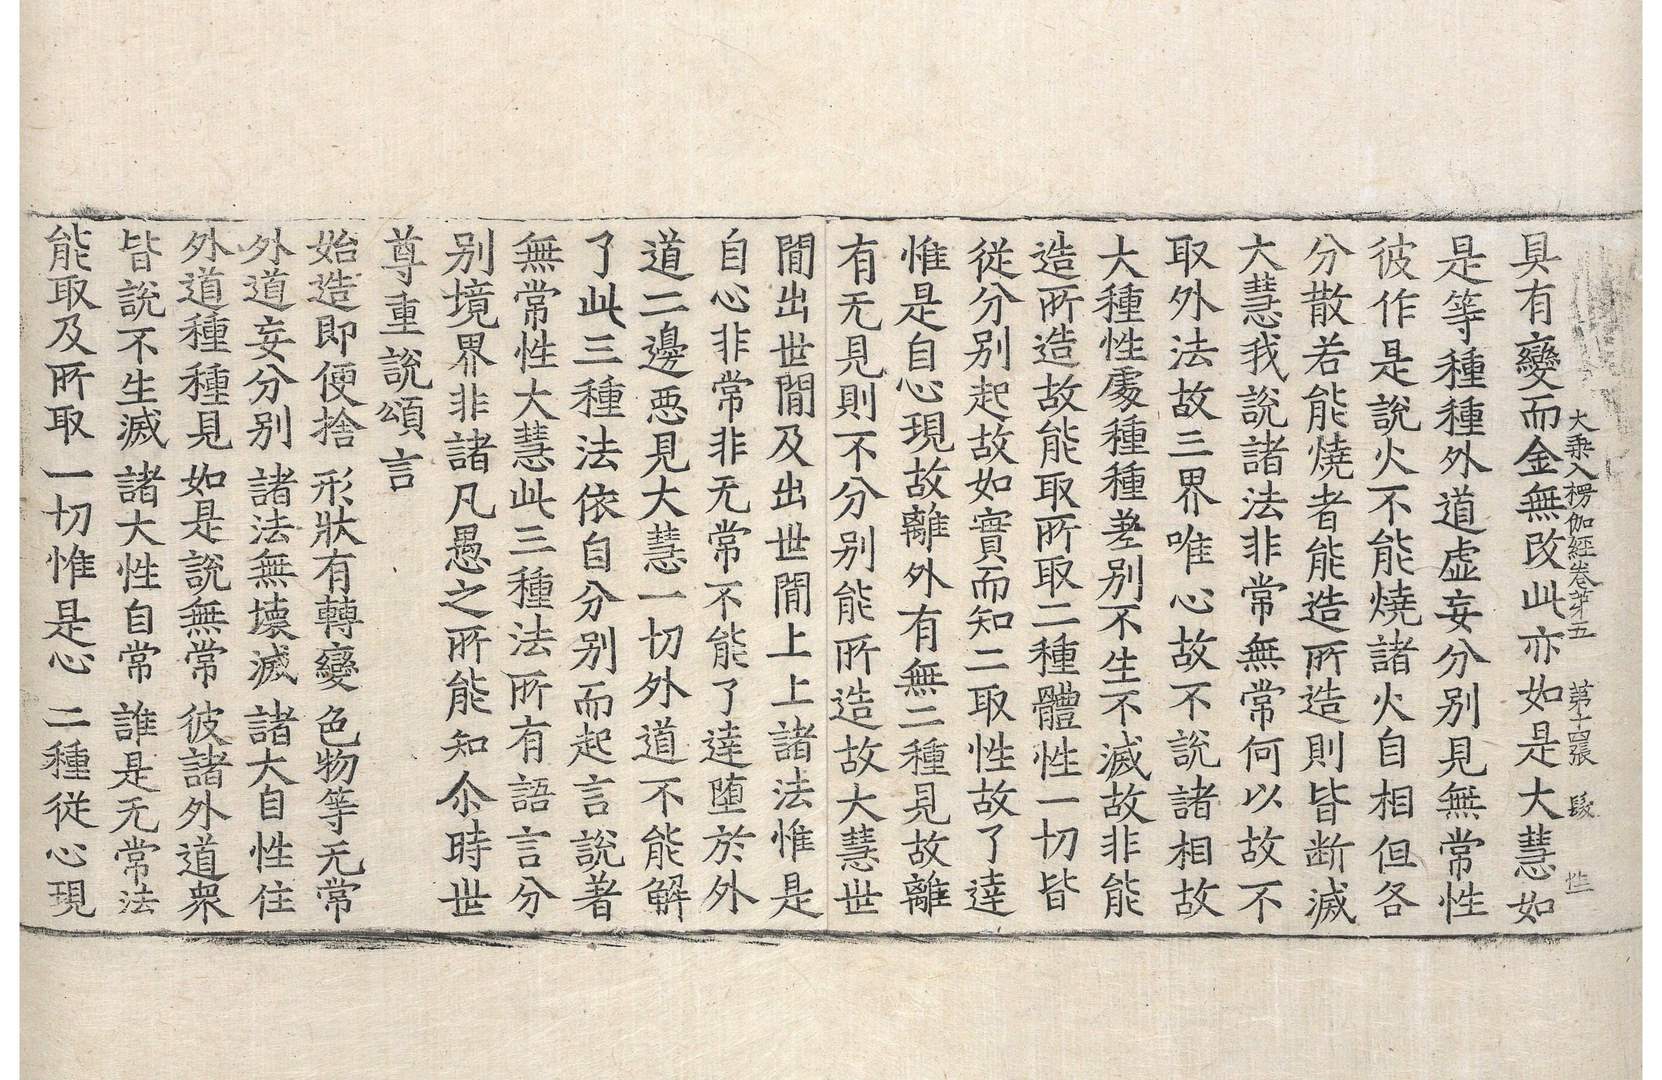 大乘入楞伽經卷第五　第十四張　髮　惟
具有變而金無改此亦如是大慧如
是等種種外道虛妄分別見無常性
彼作是說火不能燒諸火自相但各
分散若能燒者能造所造則皆断滅
大慧我說諸法非常無常何以故不
取外法故三界唯心故不說諸相故
大種性處種種差别不生不滅故非能
造所造故能取所取二種體性一切皆
從分别起故如實而知二取性故了達
惟是自心現故離外有無二種見故離
有无見則不分别能所造故大慧世
間出世間及出世間上上諸法惟是
自心非常非无常不能了達墮於外
道二邊惡見大慧一切外道不能解
了此三種法依自分别而起言說著
無常性大慧此三種法所有語言分
别境界非諸凡愚之所能知尒時世
尊重說頌言
始造即便捨　形狀有轉變　色物等无常
外道妄分别　諸法無壞滅　諸大自性住
外道種種見　如是說無常　彼諸外道衆
皆說不生滅　諸大性自常　誰是无常法
能取及所取　一切惟是心　二種從心現